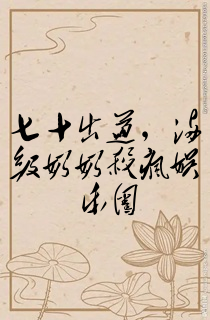 七十出道，满
级奶奶杀疯娱
乐圈